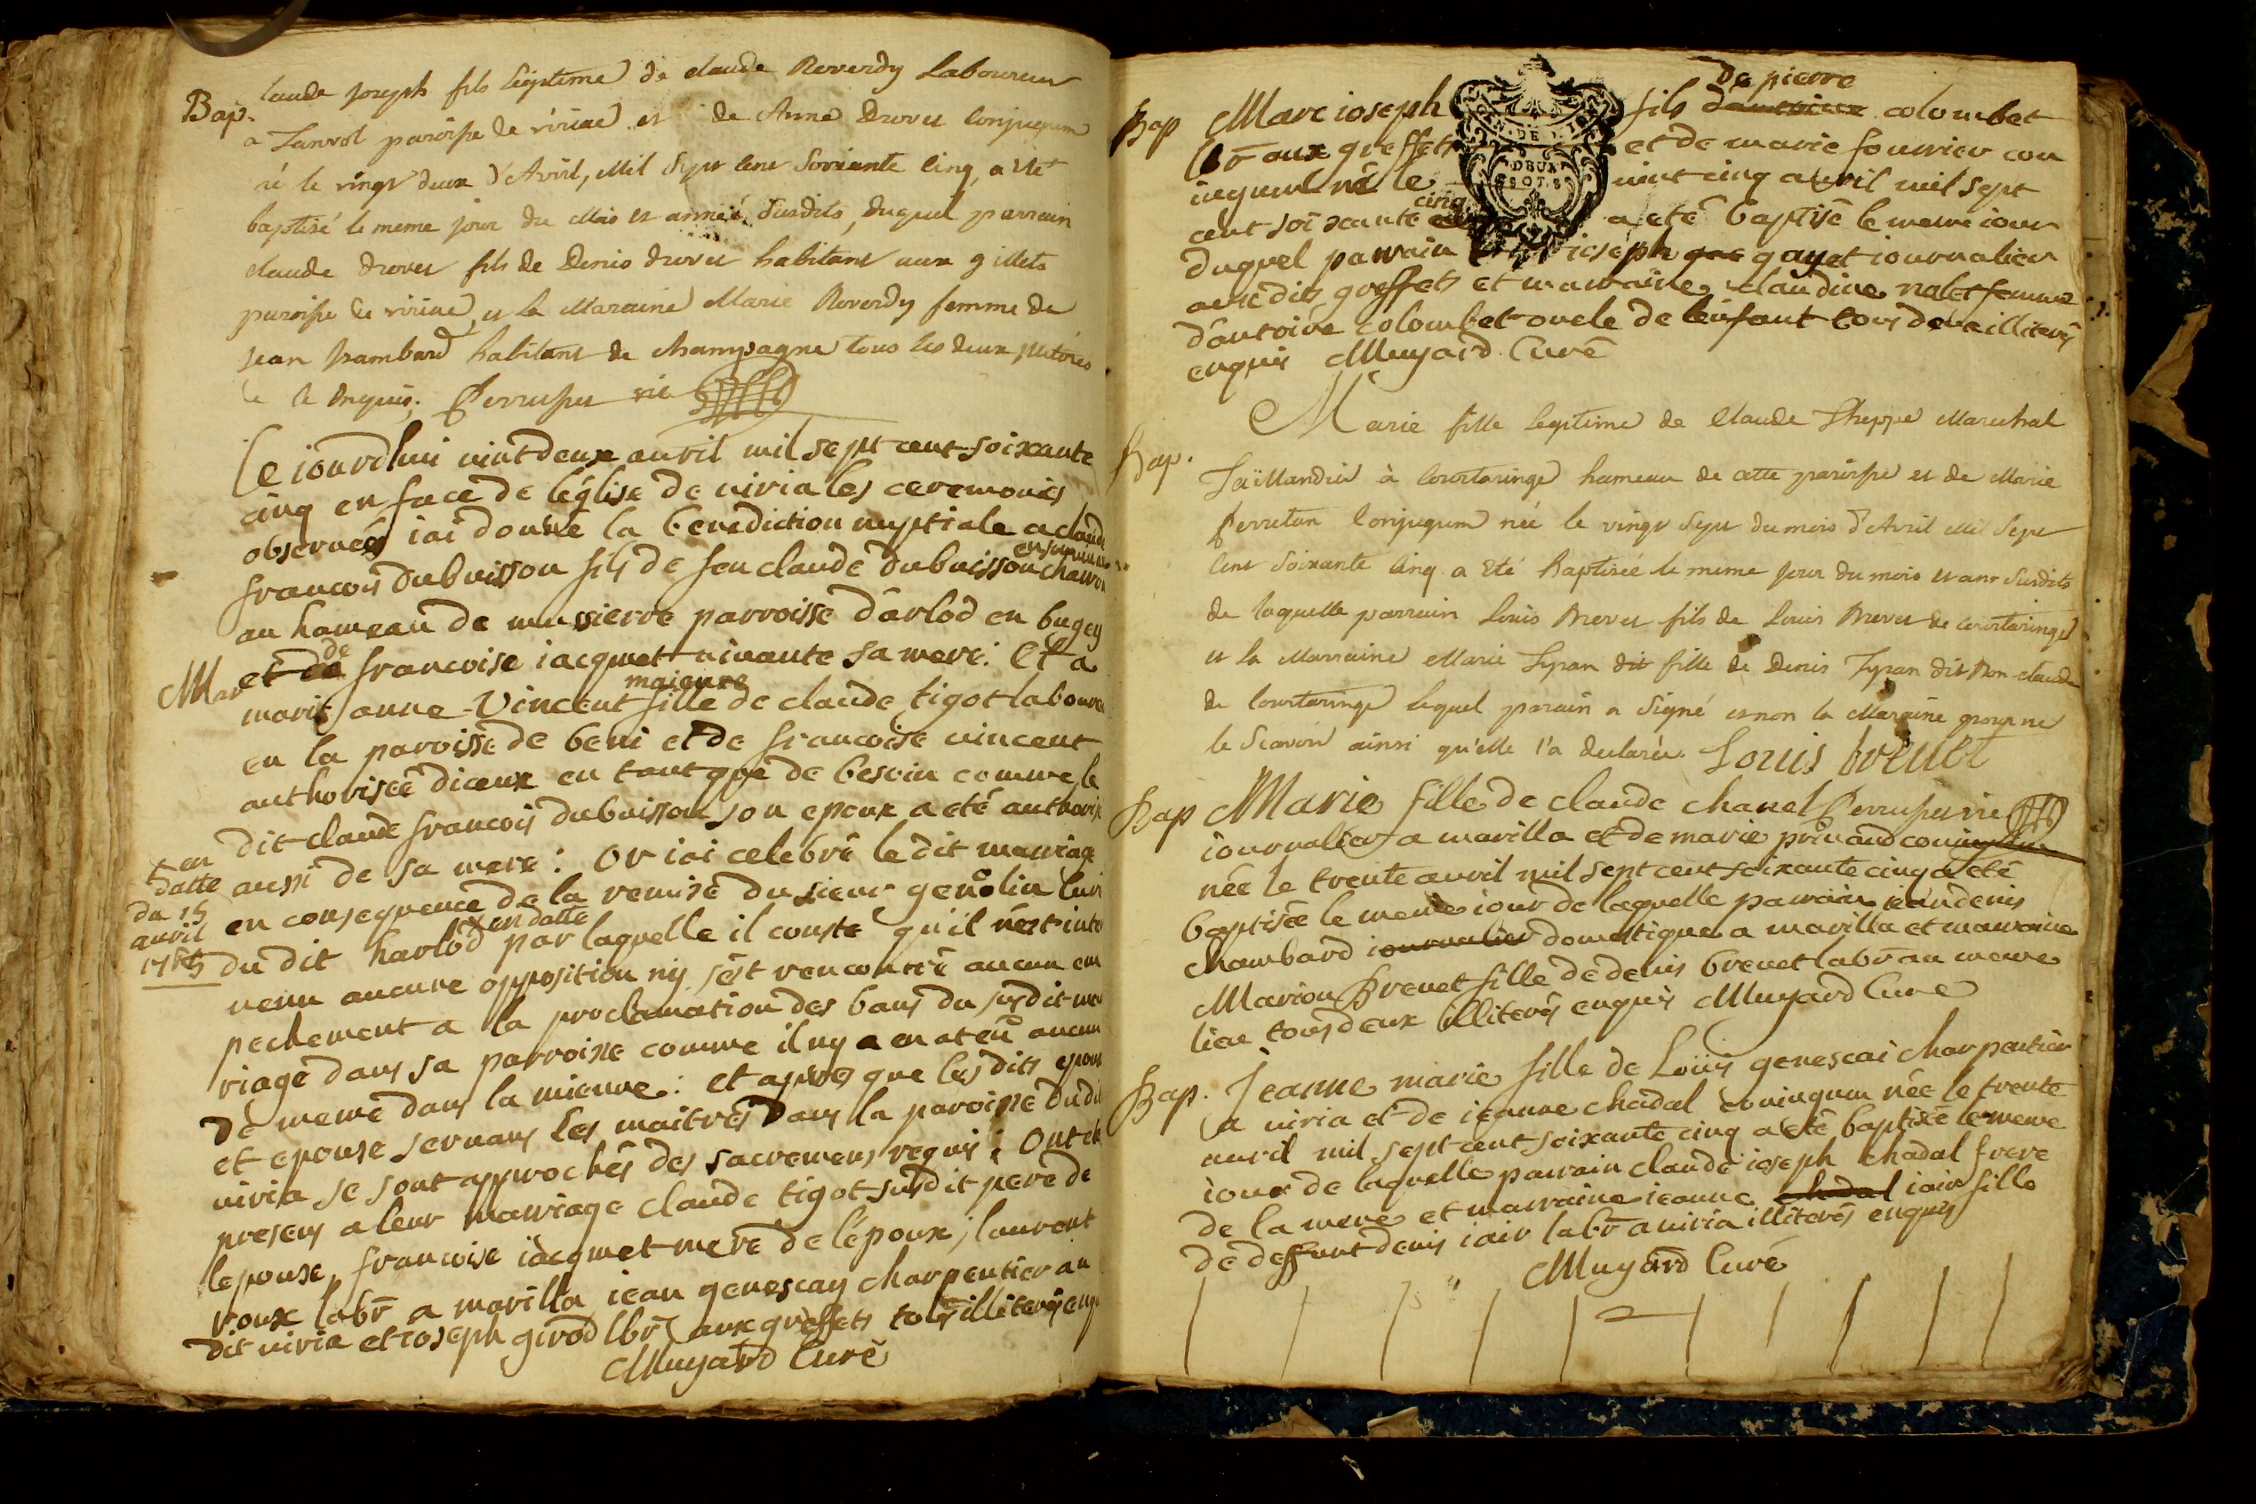 Bap. laude Joseph fils légitime de claude Reverdy Laboureur
a paroisse de viriat et de Anne Drevet conjugum
né le vingt deux d'Avril, Mil Sept Cent Soixante Cinq, a été
baptisé le meme jour du Mois et année Susdits, duquel parrain
claude drevet fils de Denis drevet habitant aux gillets
paroisse de viriat, et la Maraine Marie Reverdy femme de
Jean habitant de champagne tous les deux illitérés
de ce Enquis, Perruset vic
Ce iourdhui vint deux auril mil sept cent soixante
cinq en face de léglise de viria les ceremonies
observeés iai donné la benediction nuptiale a claude
francois dubuisson fils de feu claude dubuisson en son vivant charron
au hameau de mussierre parroisse d'arlod en bugey
Mar et de francoise iacquet vivante sa mere. Et a
marie anne Vincent fille majeure de claude tigot laboure
en la paroisse de beni et de francoise vincent
authorisée diceux en tant que de besoin comme le
dit claude francois dubuisson son epoux a eté authoris
aussi de sa mere : Or iai celebré le dit mariage
en consequence de la remise du sieur genolin curé
du dit harlod x en datte par laquelle il conste qu'il n'est inte
+ en
datte
du 15
auril
1765
venu aucune opposition ny s'est rencontré aucun em
pechement a la proclamation des bans du susdit ma
riage dans sa parroisse comme il ny a en at eu aucun
de meme dans la mienne : et apres que les dits epoux
et epouse servans les maitres dans la paroisse du dit
viria se sont approchés des sacremens requis : Ont eté
presens a leur mariage claude tigot susdit pere de
lepouse, francoise iacquet mere de lépoux, laurent
roux labr a marilla iean genescay charpentier au
dit viria et ioseph girod lbr aux greffets tous illiterés enq
Muyard Curé
Bap Marc ioseph fils dantoine de pierre colombet
lbr aux greffets et de marie fourrier con
iugum né le vint cinq avril mil sept
cent soixante cinq a eté baptisé le meme iour
duquel parrain ioseph gayet iournalier
aux dits greffets et marraine claudine nalet femme
d'antoine colombet oncle de lenfant tous deux illiterés
enquis Muyard Curé
Bap. Marie fille legitime de Claude Marechal
Taillandier à Courtaringe hameau de cette paroisse et de Marie
Perretan Conjugum née le vingt Sept du mois d'Avril Mil Sept
Cent Soixante Cinq a Eté Baptisée le meme jour du mois et an Susdits
de laquelle parrain Louis Brevet fils de Louis Brevet de Courtaringe
et la Marraine Marie dit fille de Denis dit claude
de Courtaringe lequel parain a Signé et non la Maraine pour ne
le Scavoir ainsi qu'elle l'a declarée. Louis brevet
Bap Marie fille de claude chanel Perruset vic
iournalier a marilla et de marie privand coniugum
née le trente avril mil sept cent soixante cinq a eté
baptisée le meme iour de laquelle parrain iean denis
chambard iournalier domestique a marilla et marraine
Marion Brevet fille de denis brevet labr au meme
lieu tous deux illiterés enquis Muyard Curé
Bap. Jeanne marie fille de Loüis genescai charpentier
a viria et de ieanne chadal coniugum née le trente
avril mil sept cent soixante cinq a eté baptisée le meme
iour de laquelle parrain claude ioseph chadal frere
de la mere et marraine ieanne chadal iair fille
de deffunt denis iair labr a viria illiterés enquis
Muyard Curé